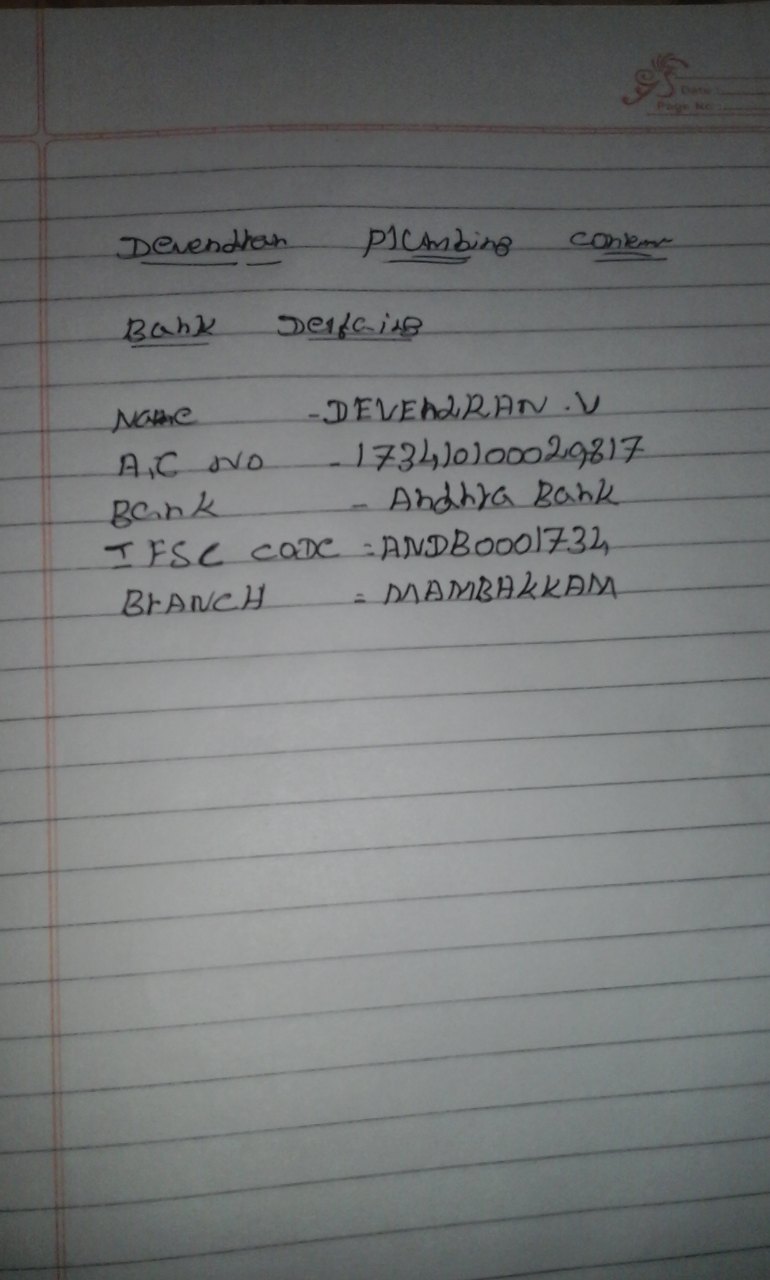 Date :
Page No :
Devendran Plumbing
Bank Detfails
Name - DEVENDRAN .V
A/C NO - 173410100029817
Bank - Andhra Bank
IFSC CODE = ANDB0001734
BrANCH = MAMBAKKAM